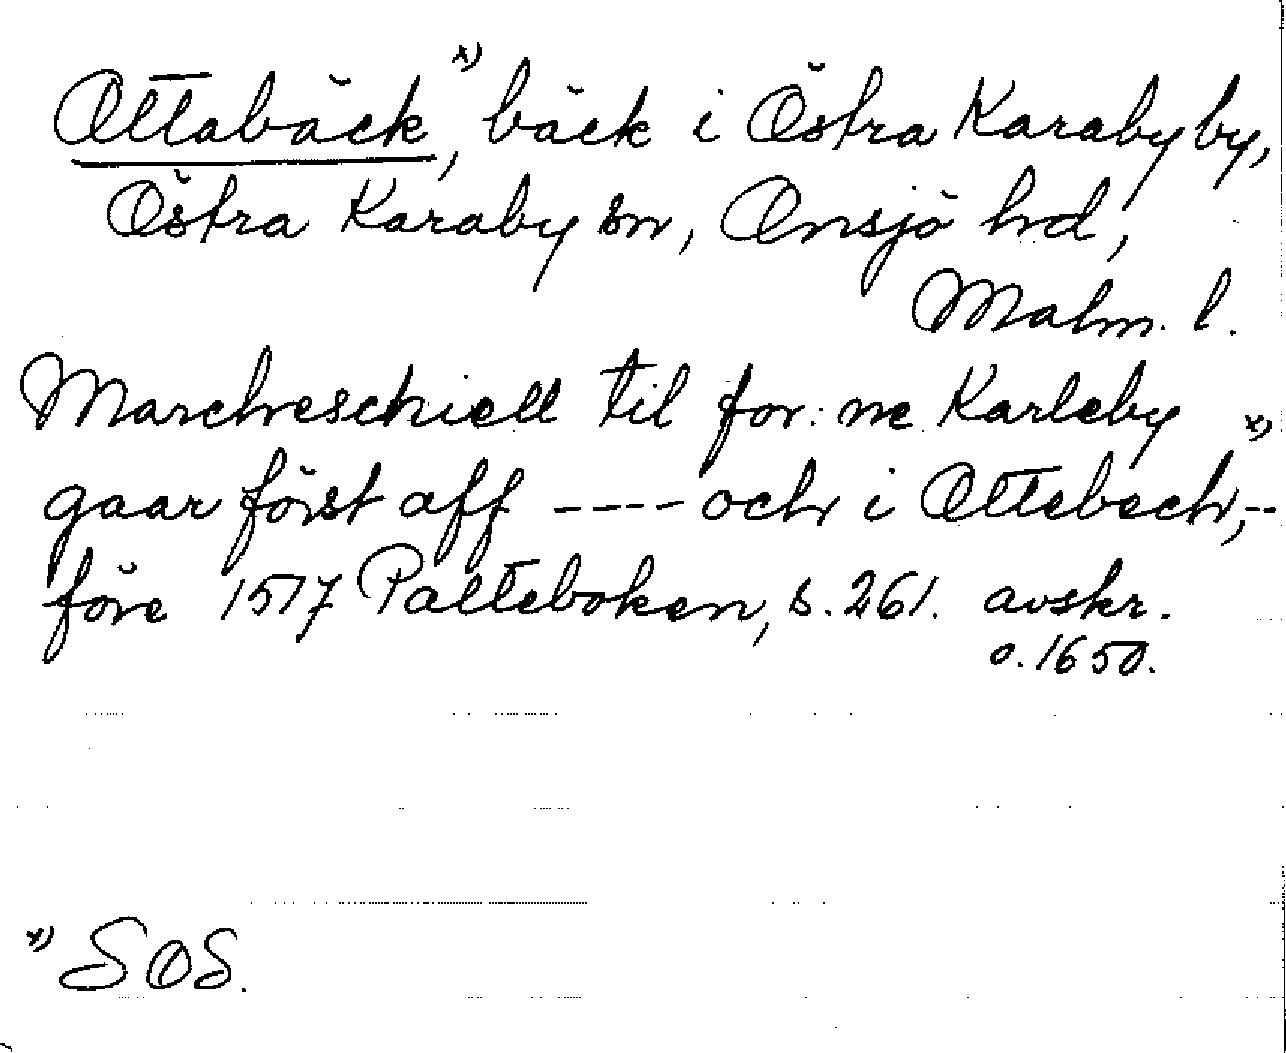 Ottabäck, x) bäck i Östra Karaby by,
Östra Karaby sn, Onsjö hd,
Malm. l.
Marcheschiell til for: ne Karleby
gaar först aff ---- och i Ottebech, x) --
före 1517 Palteboken, s. 261. avskr.
o. 1650.
x) SOS.